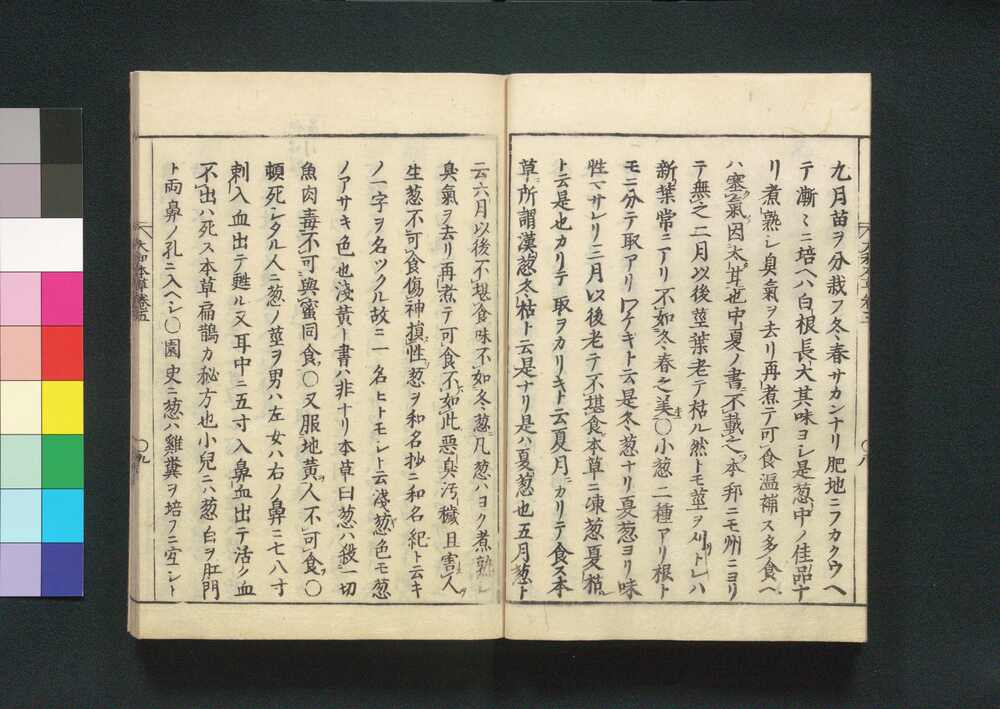 九月苗ヲ分栽フ冬春サカンナリ肥地ニフカクウヘ
テ漸〻ニ培ヘハ白根長大其味ヨシ是葱中ノ佳品ナ
リ煮熟シ臭氣ヲ去リ再煮テ可食温補ス多食ヘ
ハ塞氣因太甘也中夏ノ書不載之本邦ニモ州ニヨリ
テ無之二月以後莖葉老テ枯ル然トモ莖ヲ刈トレハ
新葉常ニアリ不如冬春之美〇小葱二種アリ根ト
モニ分テ取アリワケギト云是冬葱ナリ夏葱ヨリ味
性マサレリ三月以後老テ不堪食本草ニ凍葱夏枯
ト云是也カリテ取ヲカリキト云夏月カリテ食ス本
草所謂漢葱冬枯ト云是ナリ是ハ夏葱也五月葱ト
大和本草卷之五
〇八
云六月以後不堪食味不如冬葱凡葱ハヨク煮熟シ
臭氣ヲ去リ再煮テ可食不如此惡臭汚穢且害人
生葱不可食傷神損性葱ヲ和名抄ニ和名紀ト云キ
ノ一字ヲ名ツクル故ニ一名ヒトモシト云淺葱色モ葱
ノアサキ色也淺黄ト書ハ非ナリ本草曰葱ハ殺一切
魚肉毒不可與蜜同食〇又服地黄人不可食〇
頓死シタル人ニ葱ノ莖ヲ男ハ左女ハ右ノ鼻ニ七八寸
刺入血出テ甦ル又耳中ニ五寸入鼻血出テ活ノ血
不出ハ死ス本草扁鵲カ秘方也小兒ニハ葱白ヲ肛門
ト兩鼻ノ孔ニ入ヘシ〇園史ニ葱ハ雞糞ヲ培フニ宜シト
大和本草卷五
〇九